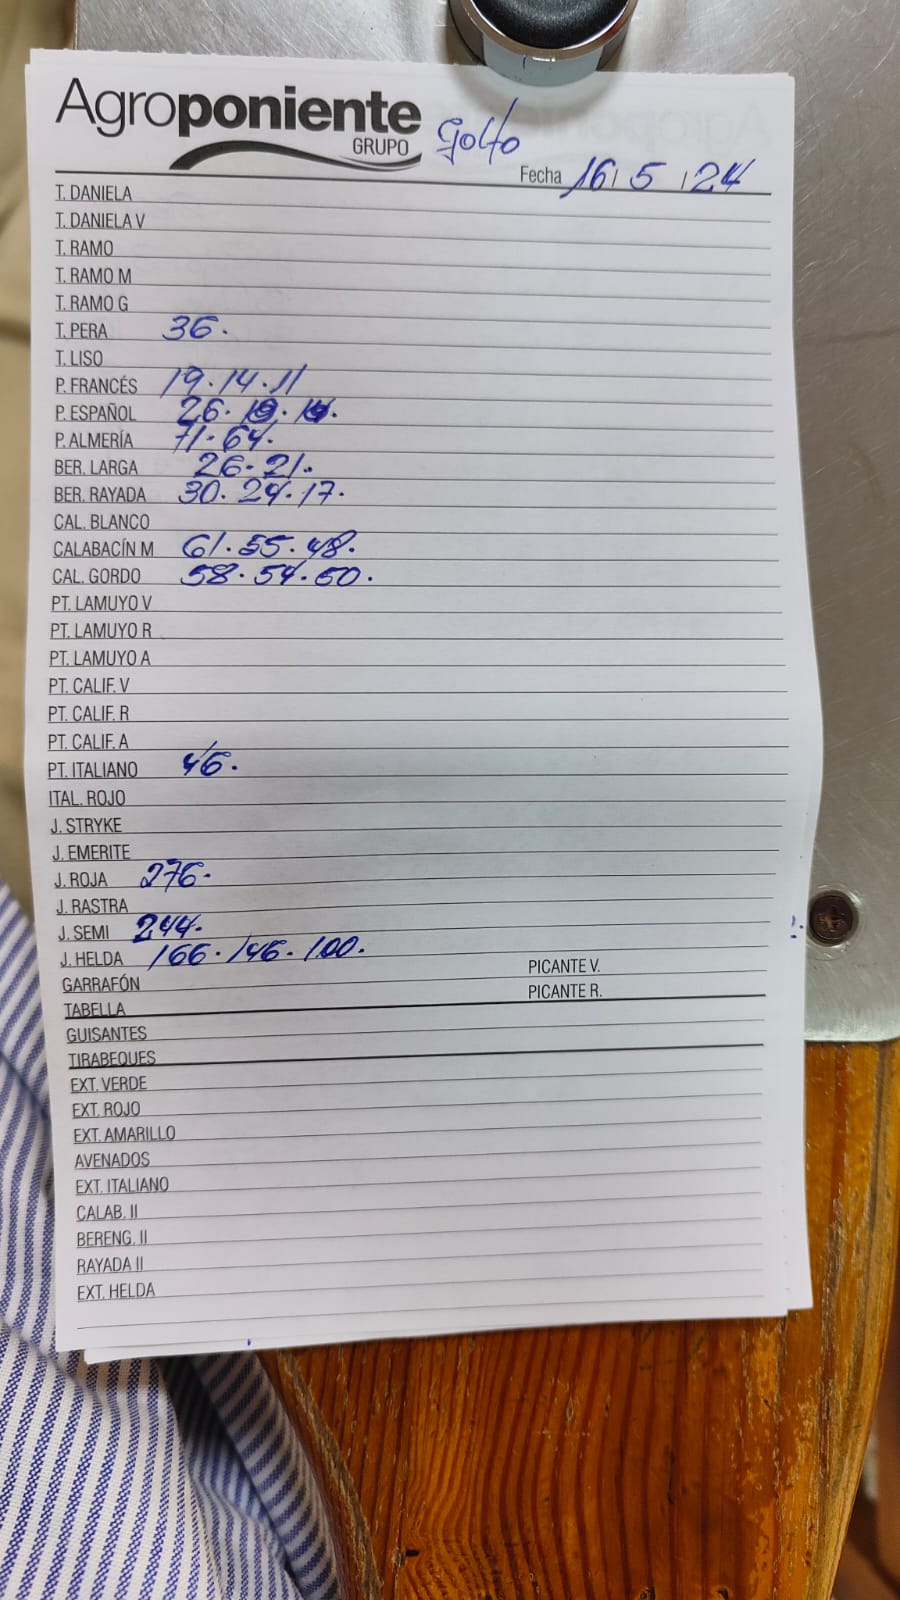 Agroponiente
GRUPO
Golfo
Fecha 16 / 5 / 24
T. DANIELA
T. DANIELA V
T. RAMO
T. RAMO M
T. RAMO G
T. PERA 36.
T. LISO
P. FRANCÉS 19. 14. 11
P. ESPAÑOL 26.
P. ALMERÍA 71. 64.
BER. LARGA 26. 21.
BER. RAYADA 30. 24. 17.
CAL. BLANCO
CALABACÍN M 61. 55. 48.
CAL. GORDO 58. 54. 50.
PT. LAMUYO V
PT. LAMUYO R
PT. LAMUYO A
PT. CALIF. V
PT. CALIF. R
PT. CALIF. A
PT. ITALIANO 46.
ITAL. ROJO
J. STRYKE
J. EMERITE
J. ROJA 276.
J. RASTRA
J. SEMI 244.
J. HELDA 166. 146. 100.
PICANTE V.
GARRAFÓN
PICANTE R.
TABELLA
GUISANTES
TIRABEQUES
EXT. VERDE
EXT. ROJO
EXT. AMARILLO
AVENADOS
EXT. ITALIANO
CALAB. II
BERENG. II
RAYADA II
EXT. HELDA